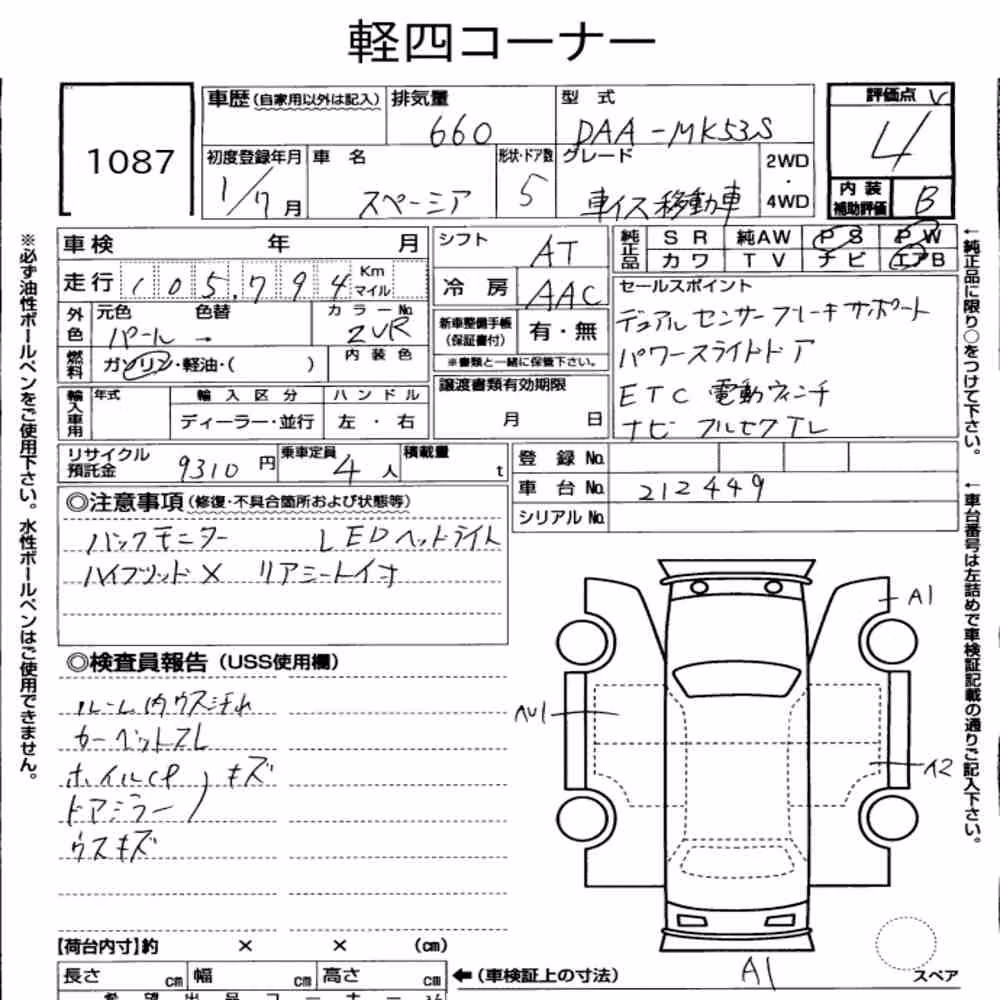 軽四コーナー
1087
車歴(自家用以外は記入) 排気量 660 型式 DAA-MK53S
初度登録年月 1/7月 車名 スペーシア 形状・ドア数 5 グレード 車イス移動車 2WD・4WD
評価点 V
4
内装補助評価 B
※必ず油性ボールペンをご使用下さい。水性ボールペンはご使用できません。
車検 年 月
走行 105,794 Km マイル
外色 元色 パール → 色替 カラーNo. ZVR
燃料 ガソリン・軽油・( ) 内装色
輸入車用 年式 輸入区分 ハンドル
ディーラー・並行 左・右
シフト AT
冷房 AAC
新車整備手帳(保証書付) 有・無
※書類と一緒に保管下さい。
譲渡書類有効期限
月 日
純正品 SR 純AW PS PW
カワ TV ナビ エアB
セールスポイント
デュアルセンサーブレーキサポート
パワースライドドア
ETC 電動ウィンチ
ナビ フルセグTV
←純正品に限り○をつけて下さい。
←車台番号は左詰めで車検証記載の通りご記入下さい。
リサイクル預託金 9310円 乗車定員 4人 積載量 t
登録No.
車台No. 212449
シリアルNo.
◎注意事項(修復・不具合箇所および状態等)
バックモニター LEDヘッドライト
ハイブリッド× リアシート1寸
◎検査員報告(USS使用欄)
ルーム内ウス汚れ
カーペットスレ
ホイルCP)キズ
ドアミラー)
ウスキズ
A1
AU1
A2
A1
スペア
【荷台内寸】約 × × (cm)
長さ cm 幅 cm 高さ cm ←(車検証上の寸法)
希望出品コーナー